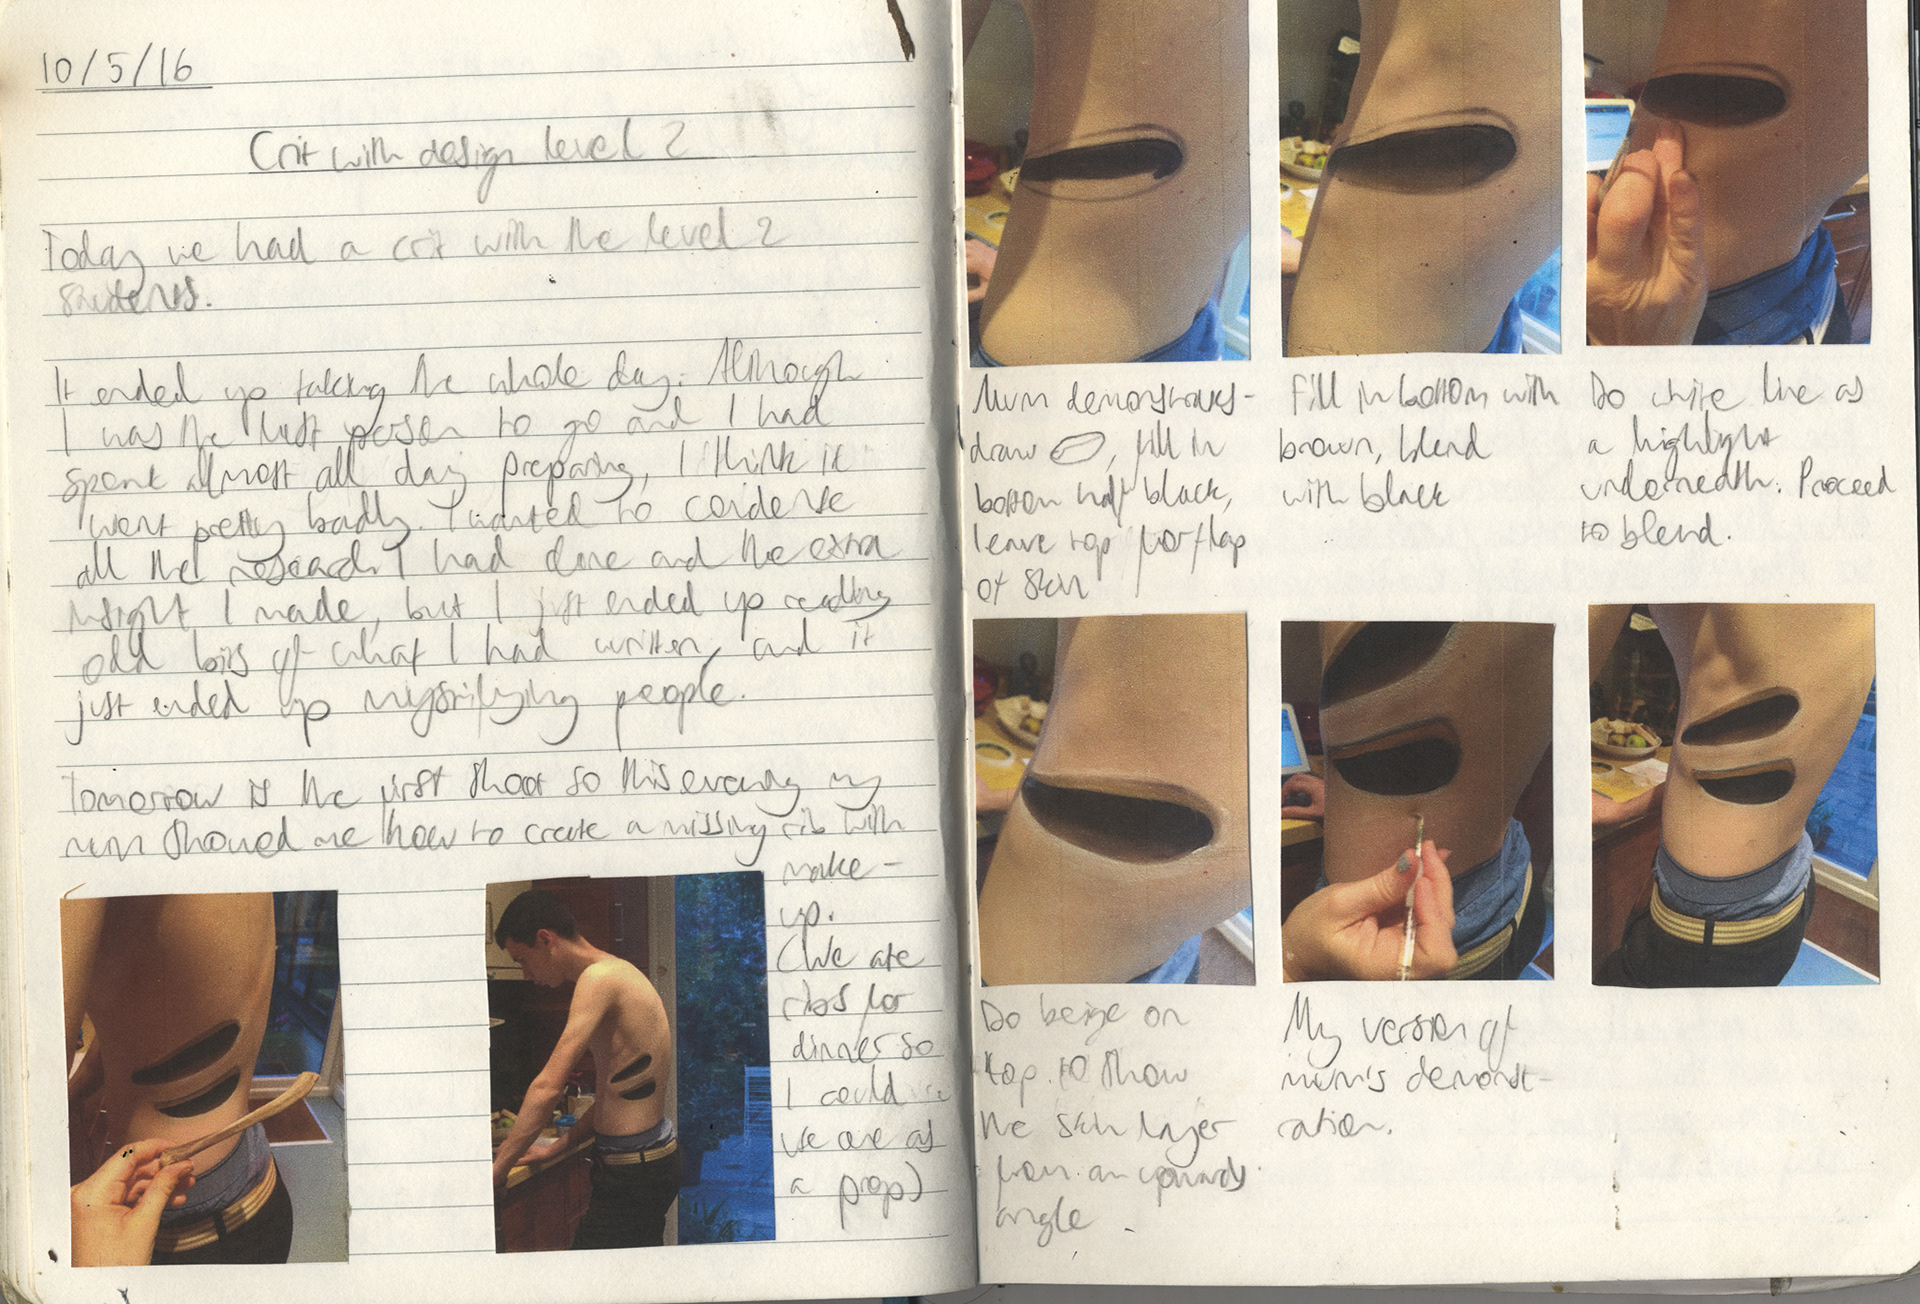 10/5/16
Crit with design level 2
Today we had a crit with the level 2
students.
It ended up taking the whole day. Although
I was the last person to go and I had
spent almost all day preparing, I think it
went pretty badly. I wanted to condense
all the research I had done and the extra
insight I made, but I just ended up reading
old bits of what I had written, and it
just ended up mystifying people.
Tomorrow is the first shoot so this evening my
mum showed me how to create a missing rib with
make-
up.
(We ate
ribs for
dinner so
I could
use one as
a prop)
Mum demonstrates-
draw , fill in
bottom half black,
leave top for flap
of skin
Fill in bottom with
brown, blend
with black
Do white line as
a highlight
underneath. Proceed
to blend.
Do beige on
top to show
the skin layer
from an upwards
angle
My version of
mum's demonst-
ration.